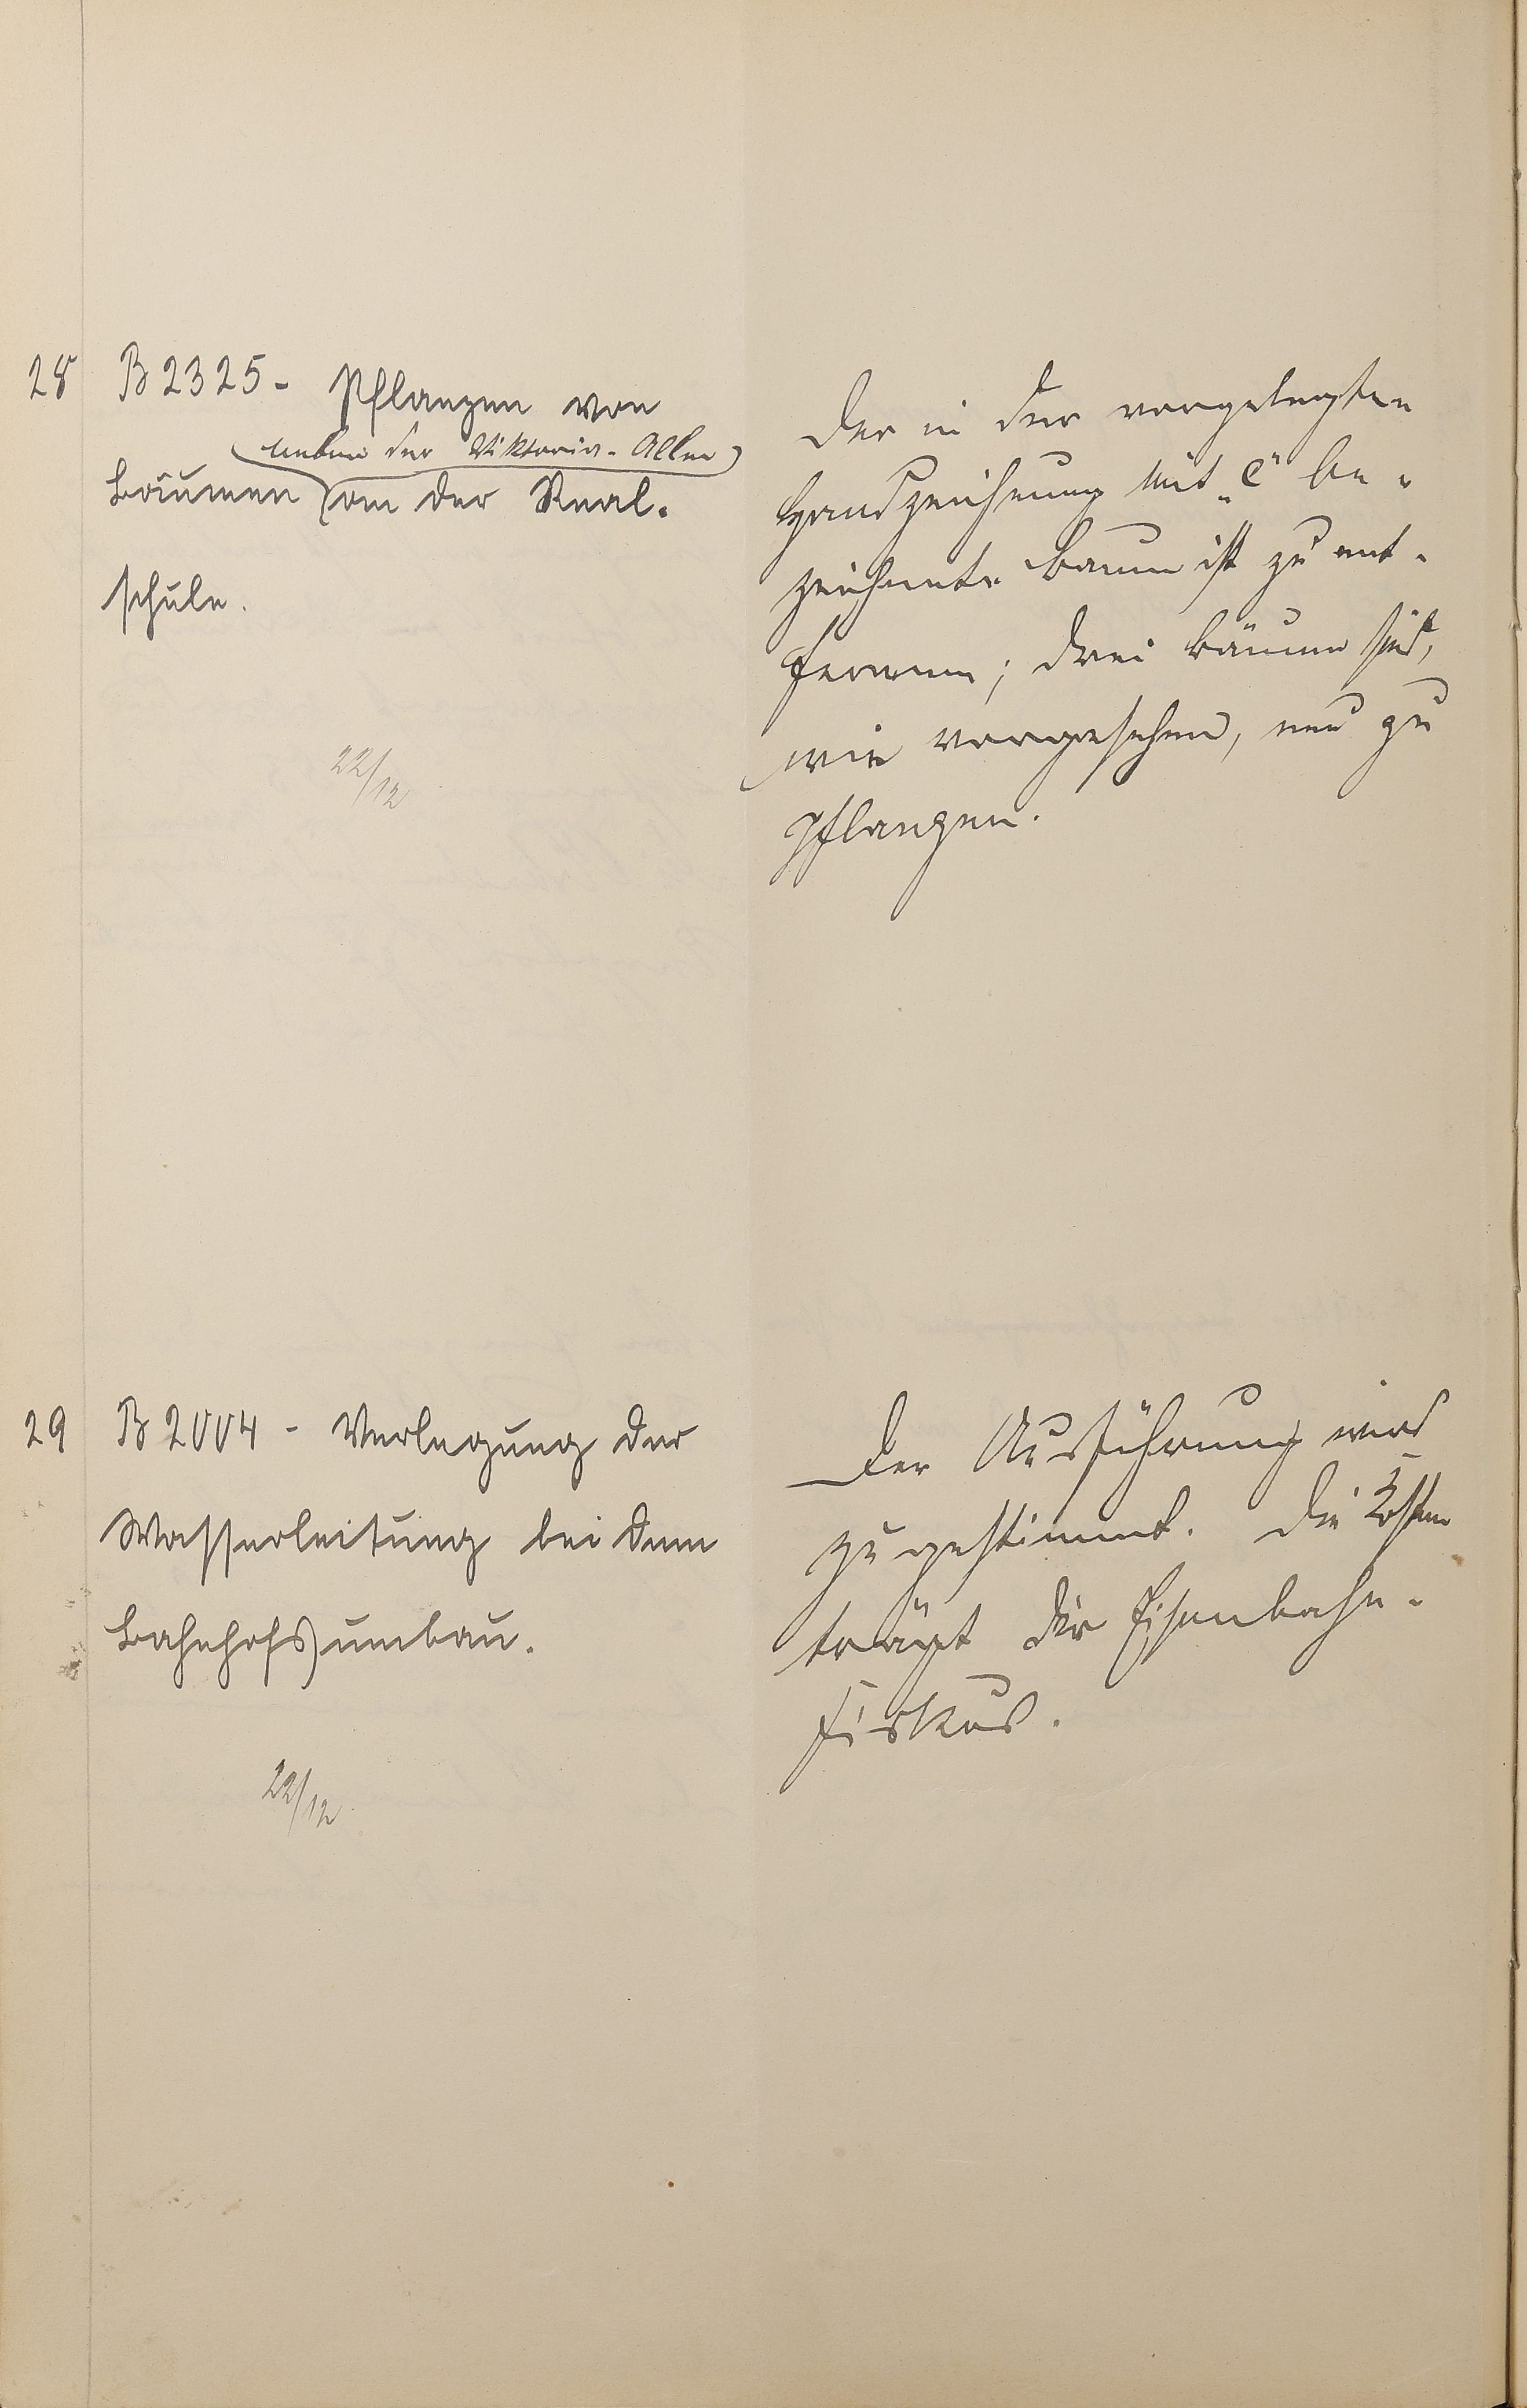 28 B 2325 - Pflanzen von
neben der Viktoria-Allee
Bäumen an der Real-
schule.
22/12
Der in der vorgelegten
Handzeichnung mit „C“ be-
zeichnete Baum ist zu ent-
fernen; drei Bäume sind,
wie vorgesehen, neu zu
pflanzen.
29 B 2004 - Verlegung der
Wasserleitung bei dem
Bahnhofsumbau.
22/12
Der Ausführung wird
zugestimmt. Die Kosten
trägt der Eisenbahn-
fiskus.